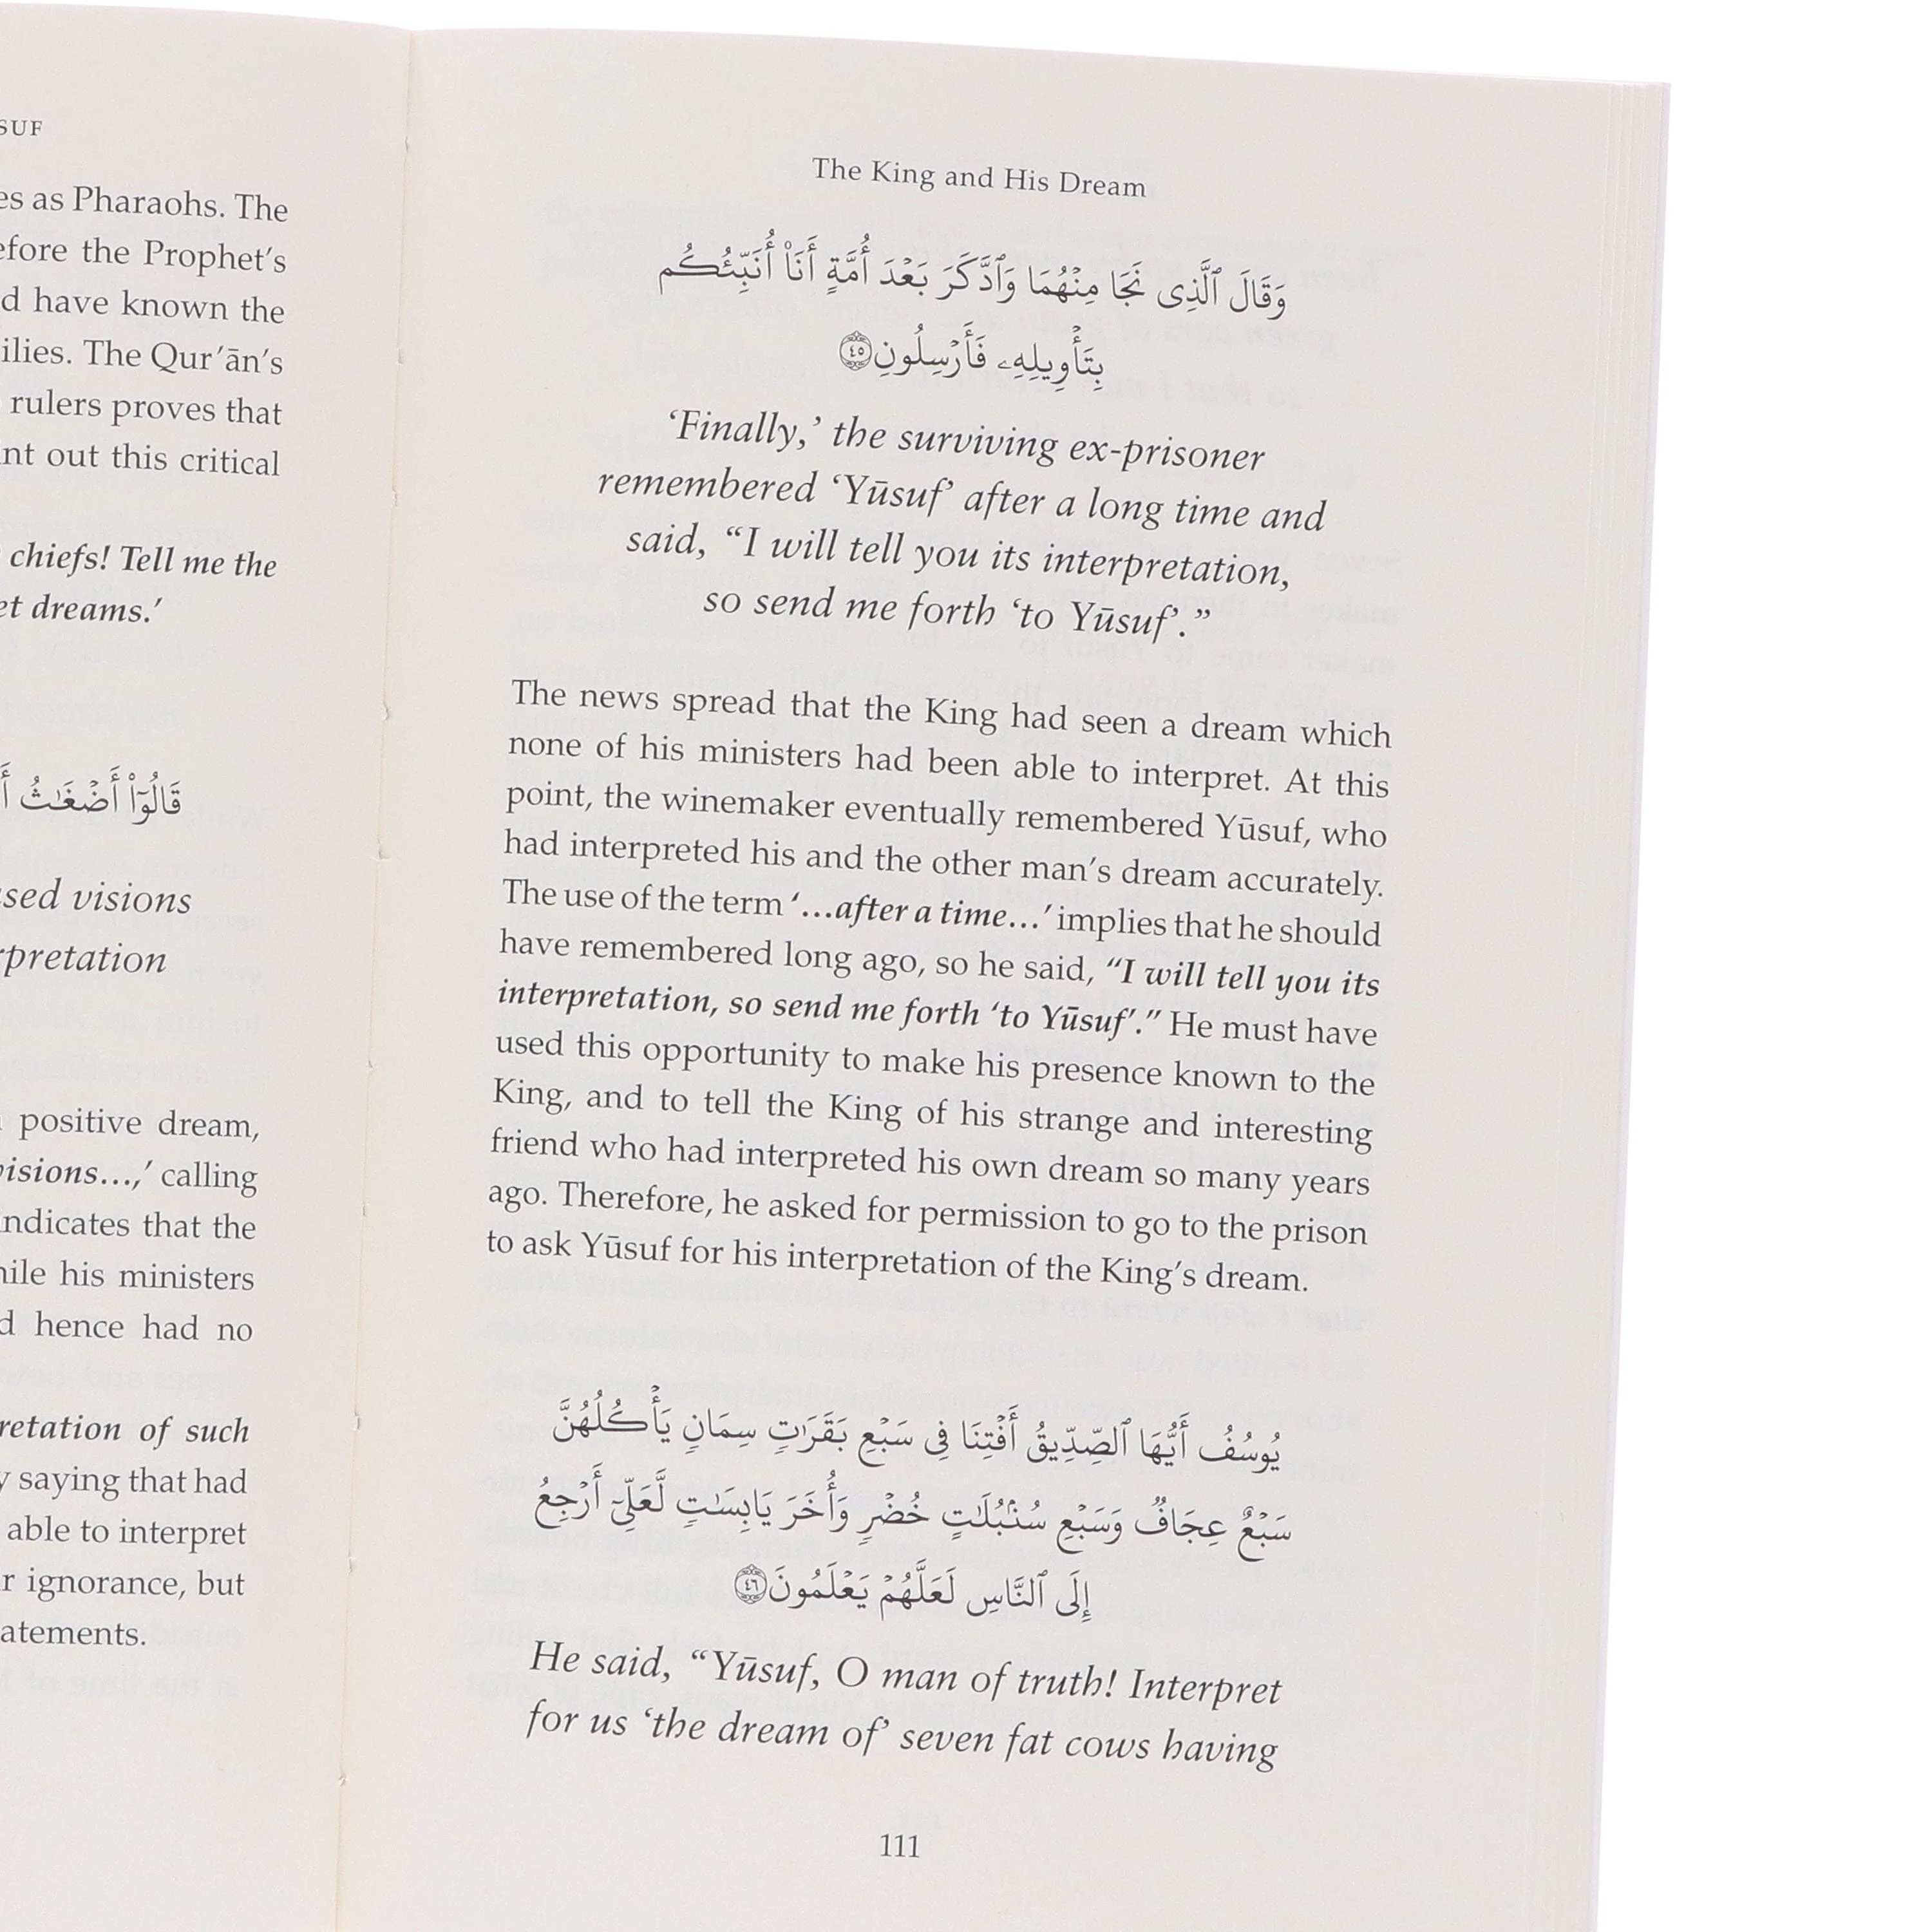 SUF
es as Pharaohs. The
efore the Prophet's
d have known the
ilies. The Qur'ān's
rulers proves that
nt out this critical
chiefs! Tell me the
et dreams.'
قَالُوٓا۟ أَضْغَـٰثُ
sed visions
rpretation
positive dream,
visions…,' calling
ndicates that the
hile his ministers
d hence had no
retation of such
y saying that had
able to interpret
r ignorance, but
atements.
The King and His Dream
وَقَالَ ٱلَّذِى نَجَا مِنْهُمَا وَٱدَّكَرَ بَعْدَ أُمَّةٍ أَنَا۠ أُنَبِّئُكُم
بِتَأْوِيلِهِۦ فَأَرْسِلُونِ ٤٥
'Finally,' the surviving ex-prisoner
remembered 'Yūsuf' after a long time and
said, “I will tell you its interpretation,
so send me forth 'to Yūsuf'.”
The news spread that the King had seen a dream which
none of his ministers had been able to interpret. At this
point, the winemaker eventually remembered Yūsuf, who
had interpreted his and the other man's dream accurately.
The use of the term '…after a time…' implies that he should
have remembered long ago, so he said, “I will tell you its
interpretation, so send me forth 'to Yūsuf'.” He must have
used this opportunity to make his presence known to the
King, and to tell the King of his strange and interesting
friend who had interpreted his own dream so many years
ago. Therefore, he asked for permission to go to the prison
to ask Yūsuf for his interpretation of the King's dream.
يُوسُفُ أَيُّهَا ٱلصِّدِّيقُ أَفْتِنَا فِى سَبْعِ بَقَرَٰتٍ سِمَانٍ يَأْكُلُهُنَّ
سَبْعٌ عِجَافٌ وَسَبْعِ سُنۢبُلَـٰتٍ خُضْرٍ وَأُخَرَ يَابِسَـٰتٍ لَّعَلِّىٓ أَرْجِعُ
إِلَى ٱلنَّاسِ لَعَلَّهُمْ يَعْلَمُونَ ٤٦
He said, “Yūsuf, O man of truth! Interpret
for us 'the dream of' seven fat cows having
111